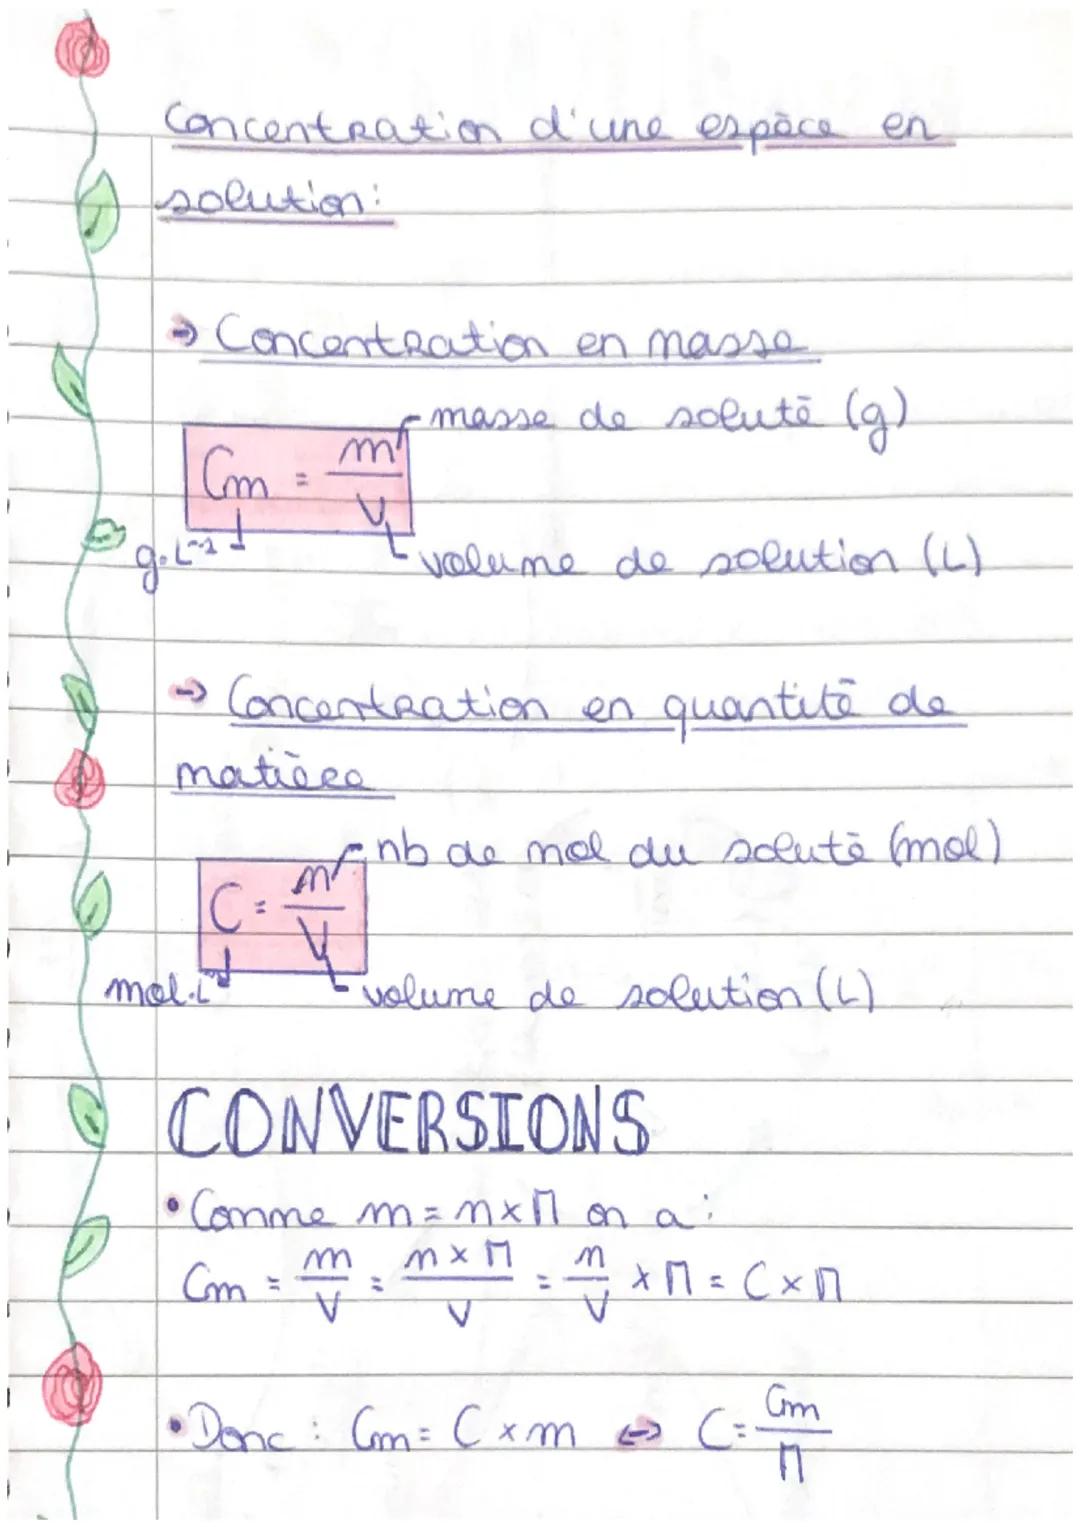 Concentration d'une espèce en
solution:
→ Concentration en masse
Cm = m/V
masse de soluté (g)
g.L⁻¹
volume de solution (L)
→ Concentration en quantité de
matière
nb de mol du soluté (mol)
C = n/V
mol.L⁻¹
volume de solution (L)
CONVERSIONS
• Comme m = n × M on a :
Cm = m/V = n × M/V = n/V × M = C × M
• Donc : Cm = C × m ↔ C = Cm/M